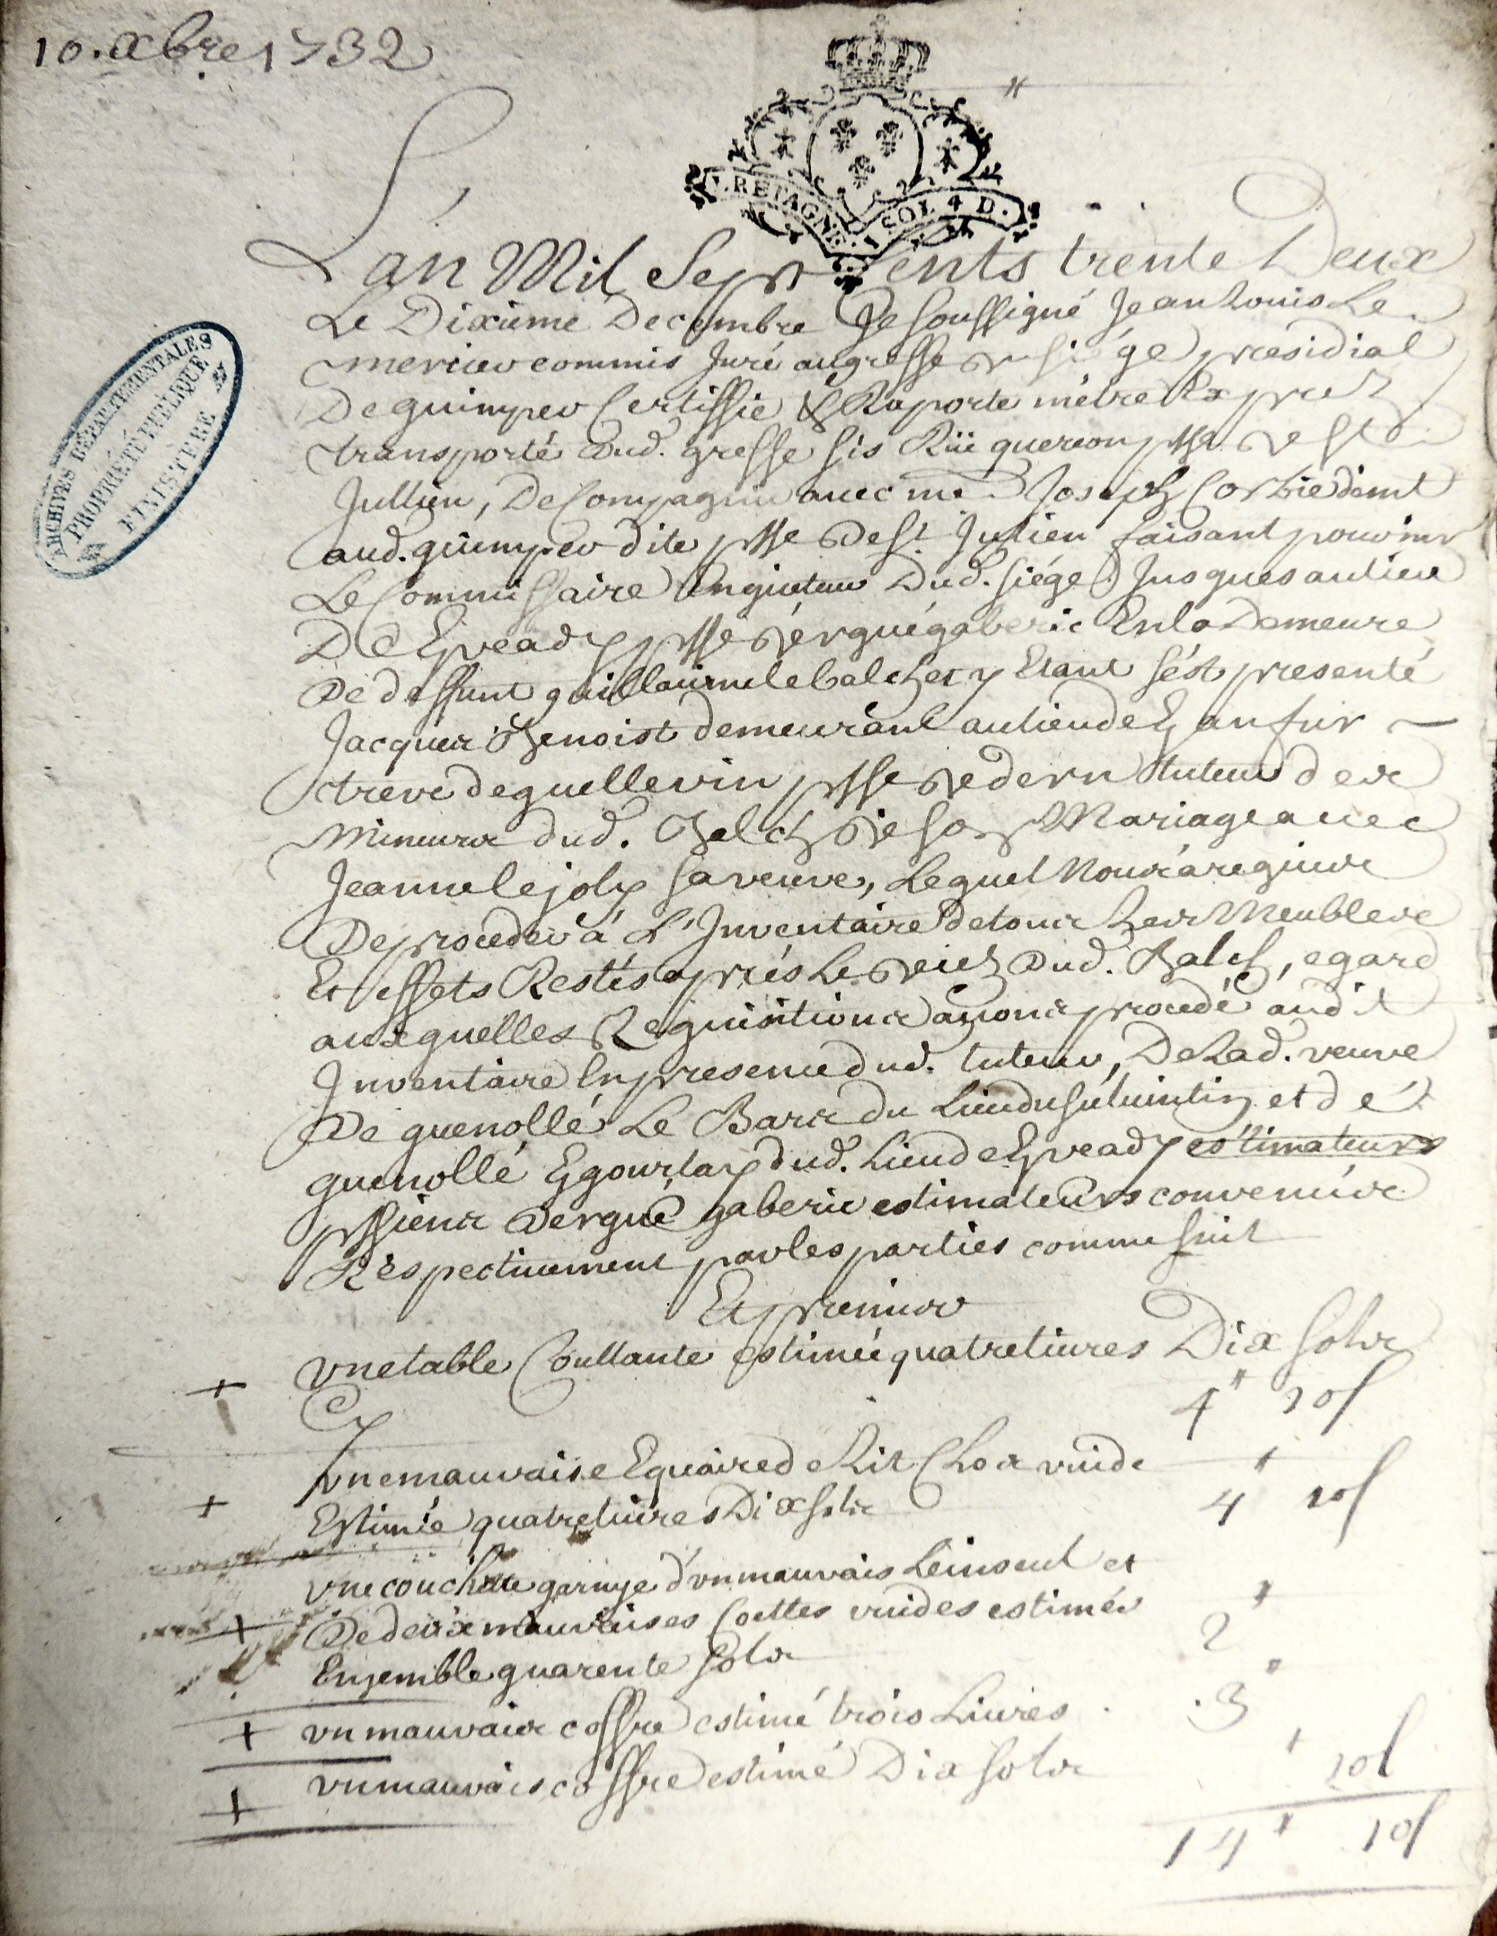 10. xbre 1732
BRETAGNE. 1 SOL 4 D.
ARCHIVES DÉPARTEMENTALES
PROPRIÉTÉ PUBLIQUE
FINISTÈRE
L'an Mil Sept Cents trente Deux
Le Dixième Decembre Je soussigné Jean Louis Le
mercier commis Juré au greffe du siége presidial
De quimper Certiffie & Raporte m'étre Exprez
transporté dud. greffe sis Rüe quereon psse de st
Jullien, De Compagnie avec me Joseph Corbie demt
aud. quimper dite psse de st Julien faisant pour mr
Le Commissaire Enqueteur Dud. siége Jusques au lieu
De Kveady psse d'érgué gaberic En la Demeure
De deffunt guillaume le balch et y Etant s'ést presenté
Jacques Benoist demeurant au lieu de Kanfur
tréve de quellevin psse de edern tuteur des
Mineurs dud. Balch de son Mariage avec
Jeanne le joly sa veuve, Lequel Nous a requis
De proceder à L'Inventaire de tous Les Meubles
Et effets Restés aprés Le deiez Dud. Balch, egard
auxquelles Requisitions avons procedé audit
Inventaire En presence dud. tuteur, De Lad. veuve
De guenollé Le Barz du Lieu du et de
guenollé Kgourlay dud. Lieu de Kveady estimateurs
pssiens d'ergué gaberic estimateurs convenüs
Réspectivement par les parties comme suit
Et premier
+ une table Coullante estimée quatre livres Dix sols
Cy 4" 10s
+ une mauvaise Equaire de Lit Clos vuide
Estimée quatre livres Dix sols 4" 10s
une couchette garnye d'un mauvais Leinseul et
+ De deux mauvaises Coettes vuides estimés
Ensemble quarente sols 2"
+ un mauvais coffre estimé trois Livres . 3"
+ un mauvais coffre estimé Dix sols " 10s
14" 10s